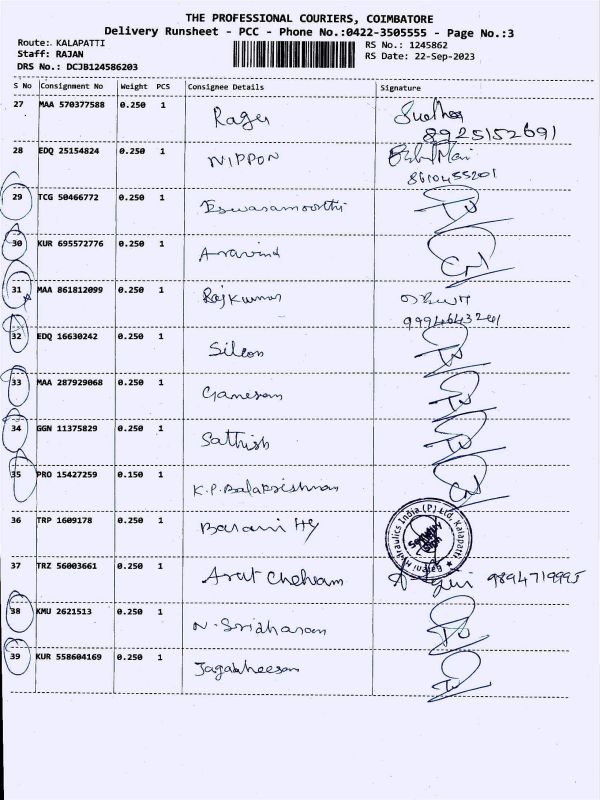 THE PROFESSIONAL COURIERS, COIMBATORE
Delivery Runsheet - PCC - Phone No.:0422-3505555 - Page No.:3
Route: KALAPATTI
RS No.: 1245862
Staff: RAJAN
RS Date: 22-Sep-2023
DRS No.: DCJB124586203
S No Consignment No Weight PCS Consignee Details Signature
27 MAA 570377588 0.250 1 Rages
8925152691
28 EDQ 25154824 0.250 1 NIPPON
8610455201
29 TCG 50466772 0.250 1 Eswaramoorthi
30 KUR 695572776 0.250 1 Aravind
31 MAA 861812099 0.250 1 Rajkumar
32 EDQ 16630242 0.250 1 Silcon
33 MAA 287929068 0.250 1 Ganesan
34 GGN 11375829 0.250 1 Sathish
35 PRO 15427259 0.150 1 K.P.Balakrishnan
36 TRP 1609178 0.250 1 Barani Hy
Hydraulics India (P) Ltd, Kalapatti
37 TRZ 56003661 0.250 1 Arut Cheham 9894719995
38 KMU 2621513 0.250 1 N. Sridharan
39 KUR 558604169 0.250 1 Jagatheesan